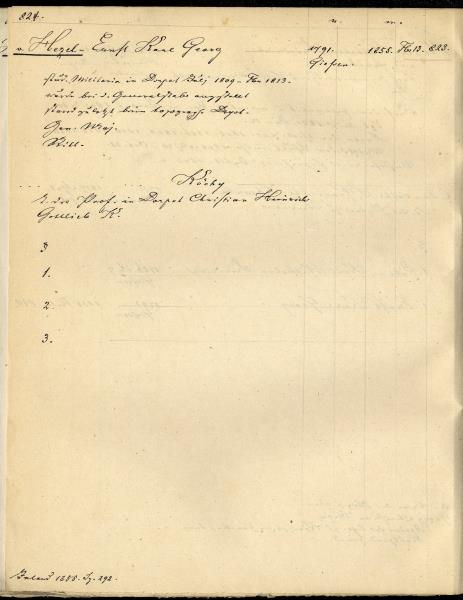 824.
n. m.
v. Hezel – Ernst Karl Georg 1791. 1855. 823.
Giessen.
stud. Militaria in Dorpat 1809 – 1813.
wurde bei d. Generalstabe angestellt
stand zuletzt beim topograph. Depot.
Gen. Maj.
Köchy
d. Prof. in Dorpat Christian Heinrich
Gottlieb K.
3
1.
2.
3.
Inland 1855. Sp. 292.